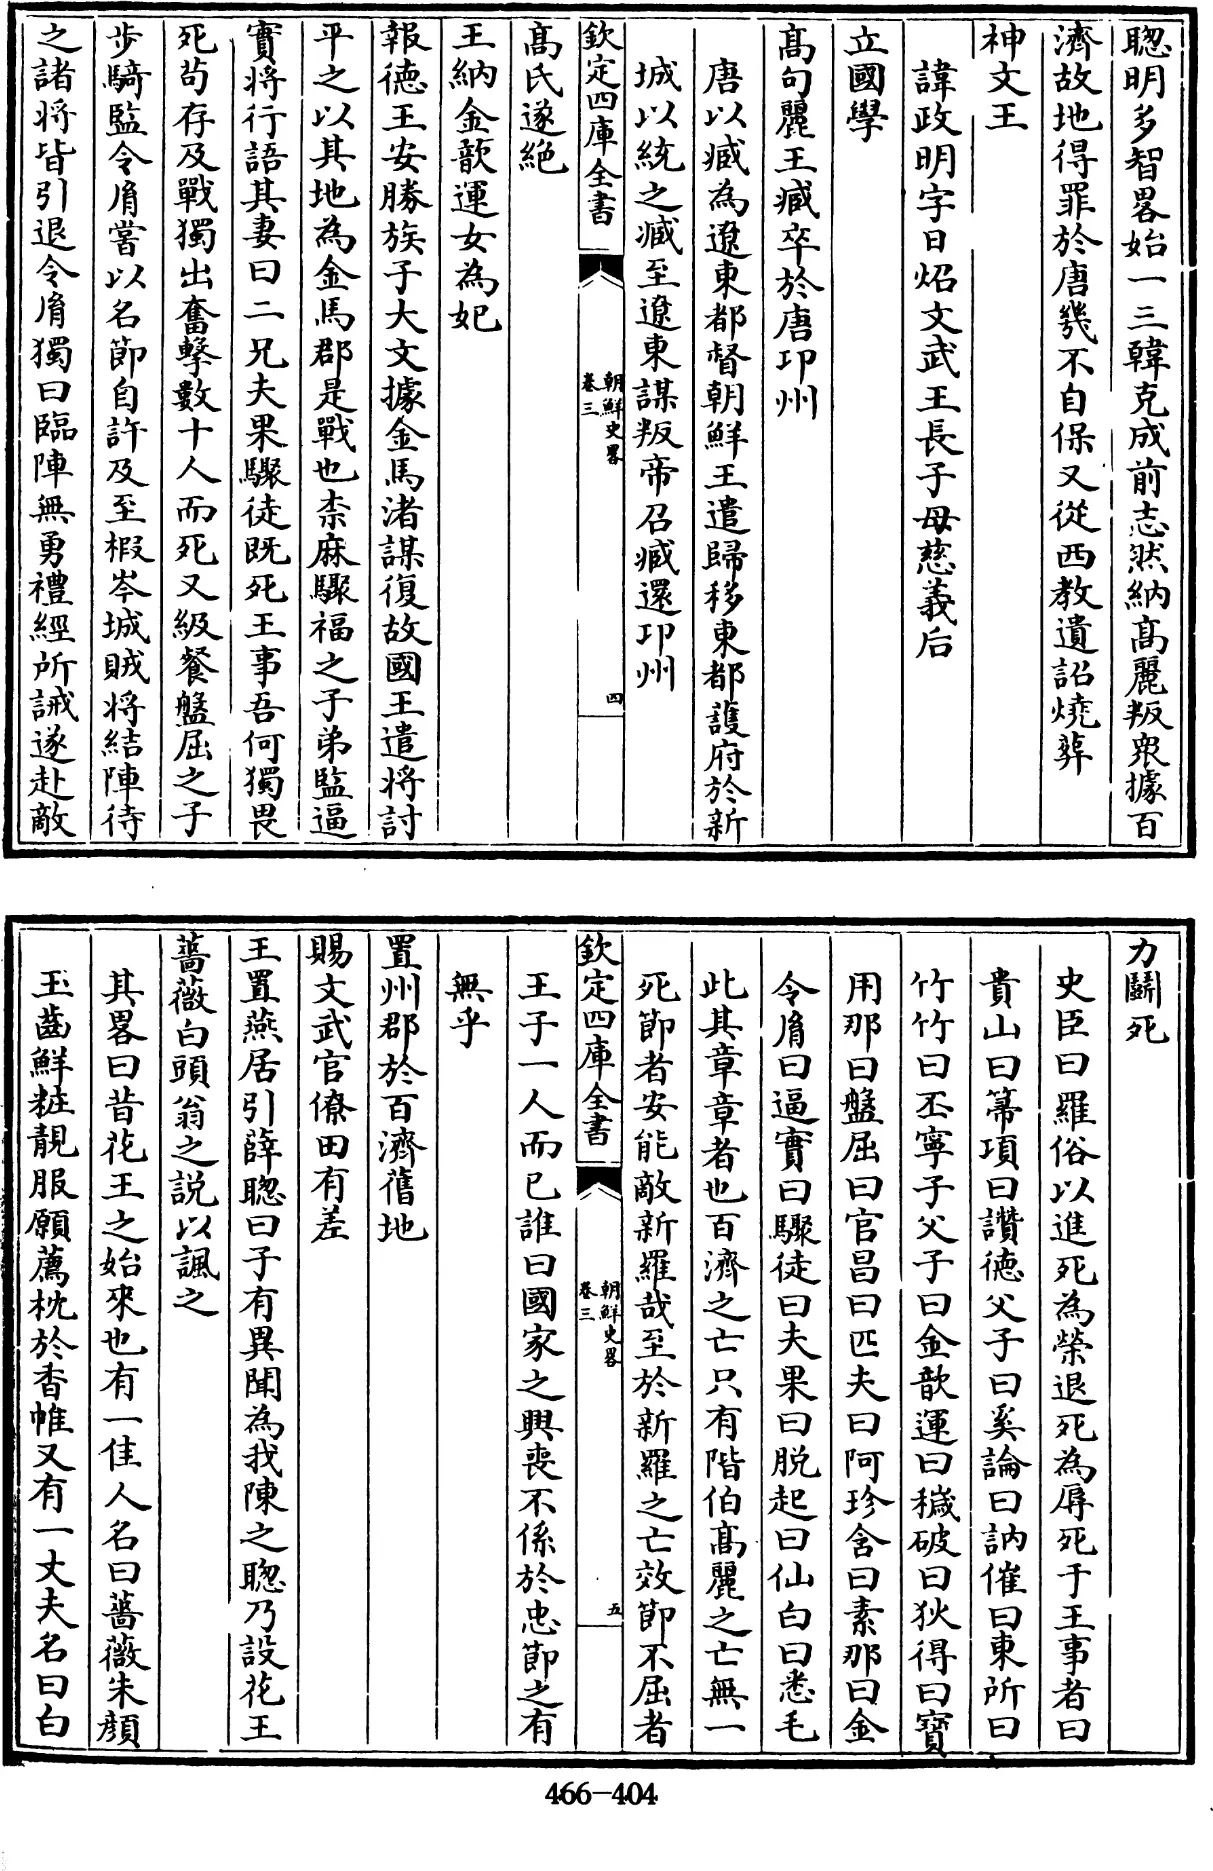 聰明多智畧始一三韓克成前志然納髙麗叛衆據百
濟故地得罪於唐幾不自保又從西教遺詔燒葬
神文王
諱政明字日炤文武王長子母慈義后
立國學
髙句麗王臧卒於唐卭州
唐以臧為遼東都督朝鮮王遣歸移東都護府於新
城以統之臧至遼東謀叛帝召臧還卭州
欽定四庫全書
朝鮮史畧
卷三
四
髙氏遂絶
王納金歆運女為妃
報德王安勝族子大文據金馬渚謀復故國王遣将討
平之以其地為金馬郡是戰也柰麻驟福之子弟監逼
實将行語其妻曰二兄夫果驟徒既死王事吾何獨畏
死茍存及戰獨出奮擊數十人而死又級餐盤屈之子
步騎監令胤嘗以名節自許及至椵岑城賊将結陣待
之諸将皆引退令胤獨曰臨陣無勇禮經所誡遂赴敵
力鬭死
史臣曰羅俗以進死為榮退死為辱死于王事者曰
貴山曰箒項曰讚徳父子曰奚論曰訥催曰東所曰
竹竹曰丕寧子父子曰金歆運曰穢破曰狄得曰寶
用那曰盤屈曰官昌曰匹夫曰阿珍含曰素那曰金
令胤曰逼實曰驟徒曰夫果曰脱起曰仙白曰悉毛
此其章章者也百濟之亡只有階伯髙麗之亡無一
死節者安能敵新羅哉至於新羅之亡效節不屈者
欽定四庫全書
朝鮮史畧
卷三
五
王子一人而已誰曰國家之興喪不係於忠節之有
無乎
置州郡於百濟舊地
賜文武官僚田有差
王置燕居引薛聰曰子有異聞為我陳之聰乃設花王
薔薇白頭翁之説以諷之
其畧曰昔花王之始來也有一佳人名曰薔薇朱顔
玉齒鮮粧靚服願薦枕於香帷又有一丈夫名曰白
466-404